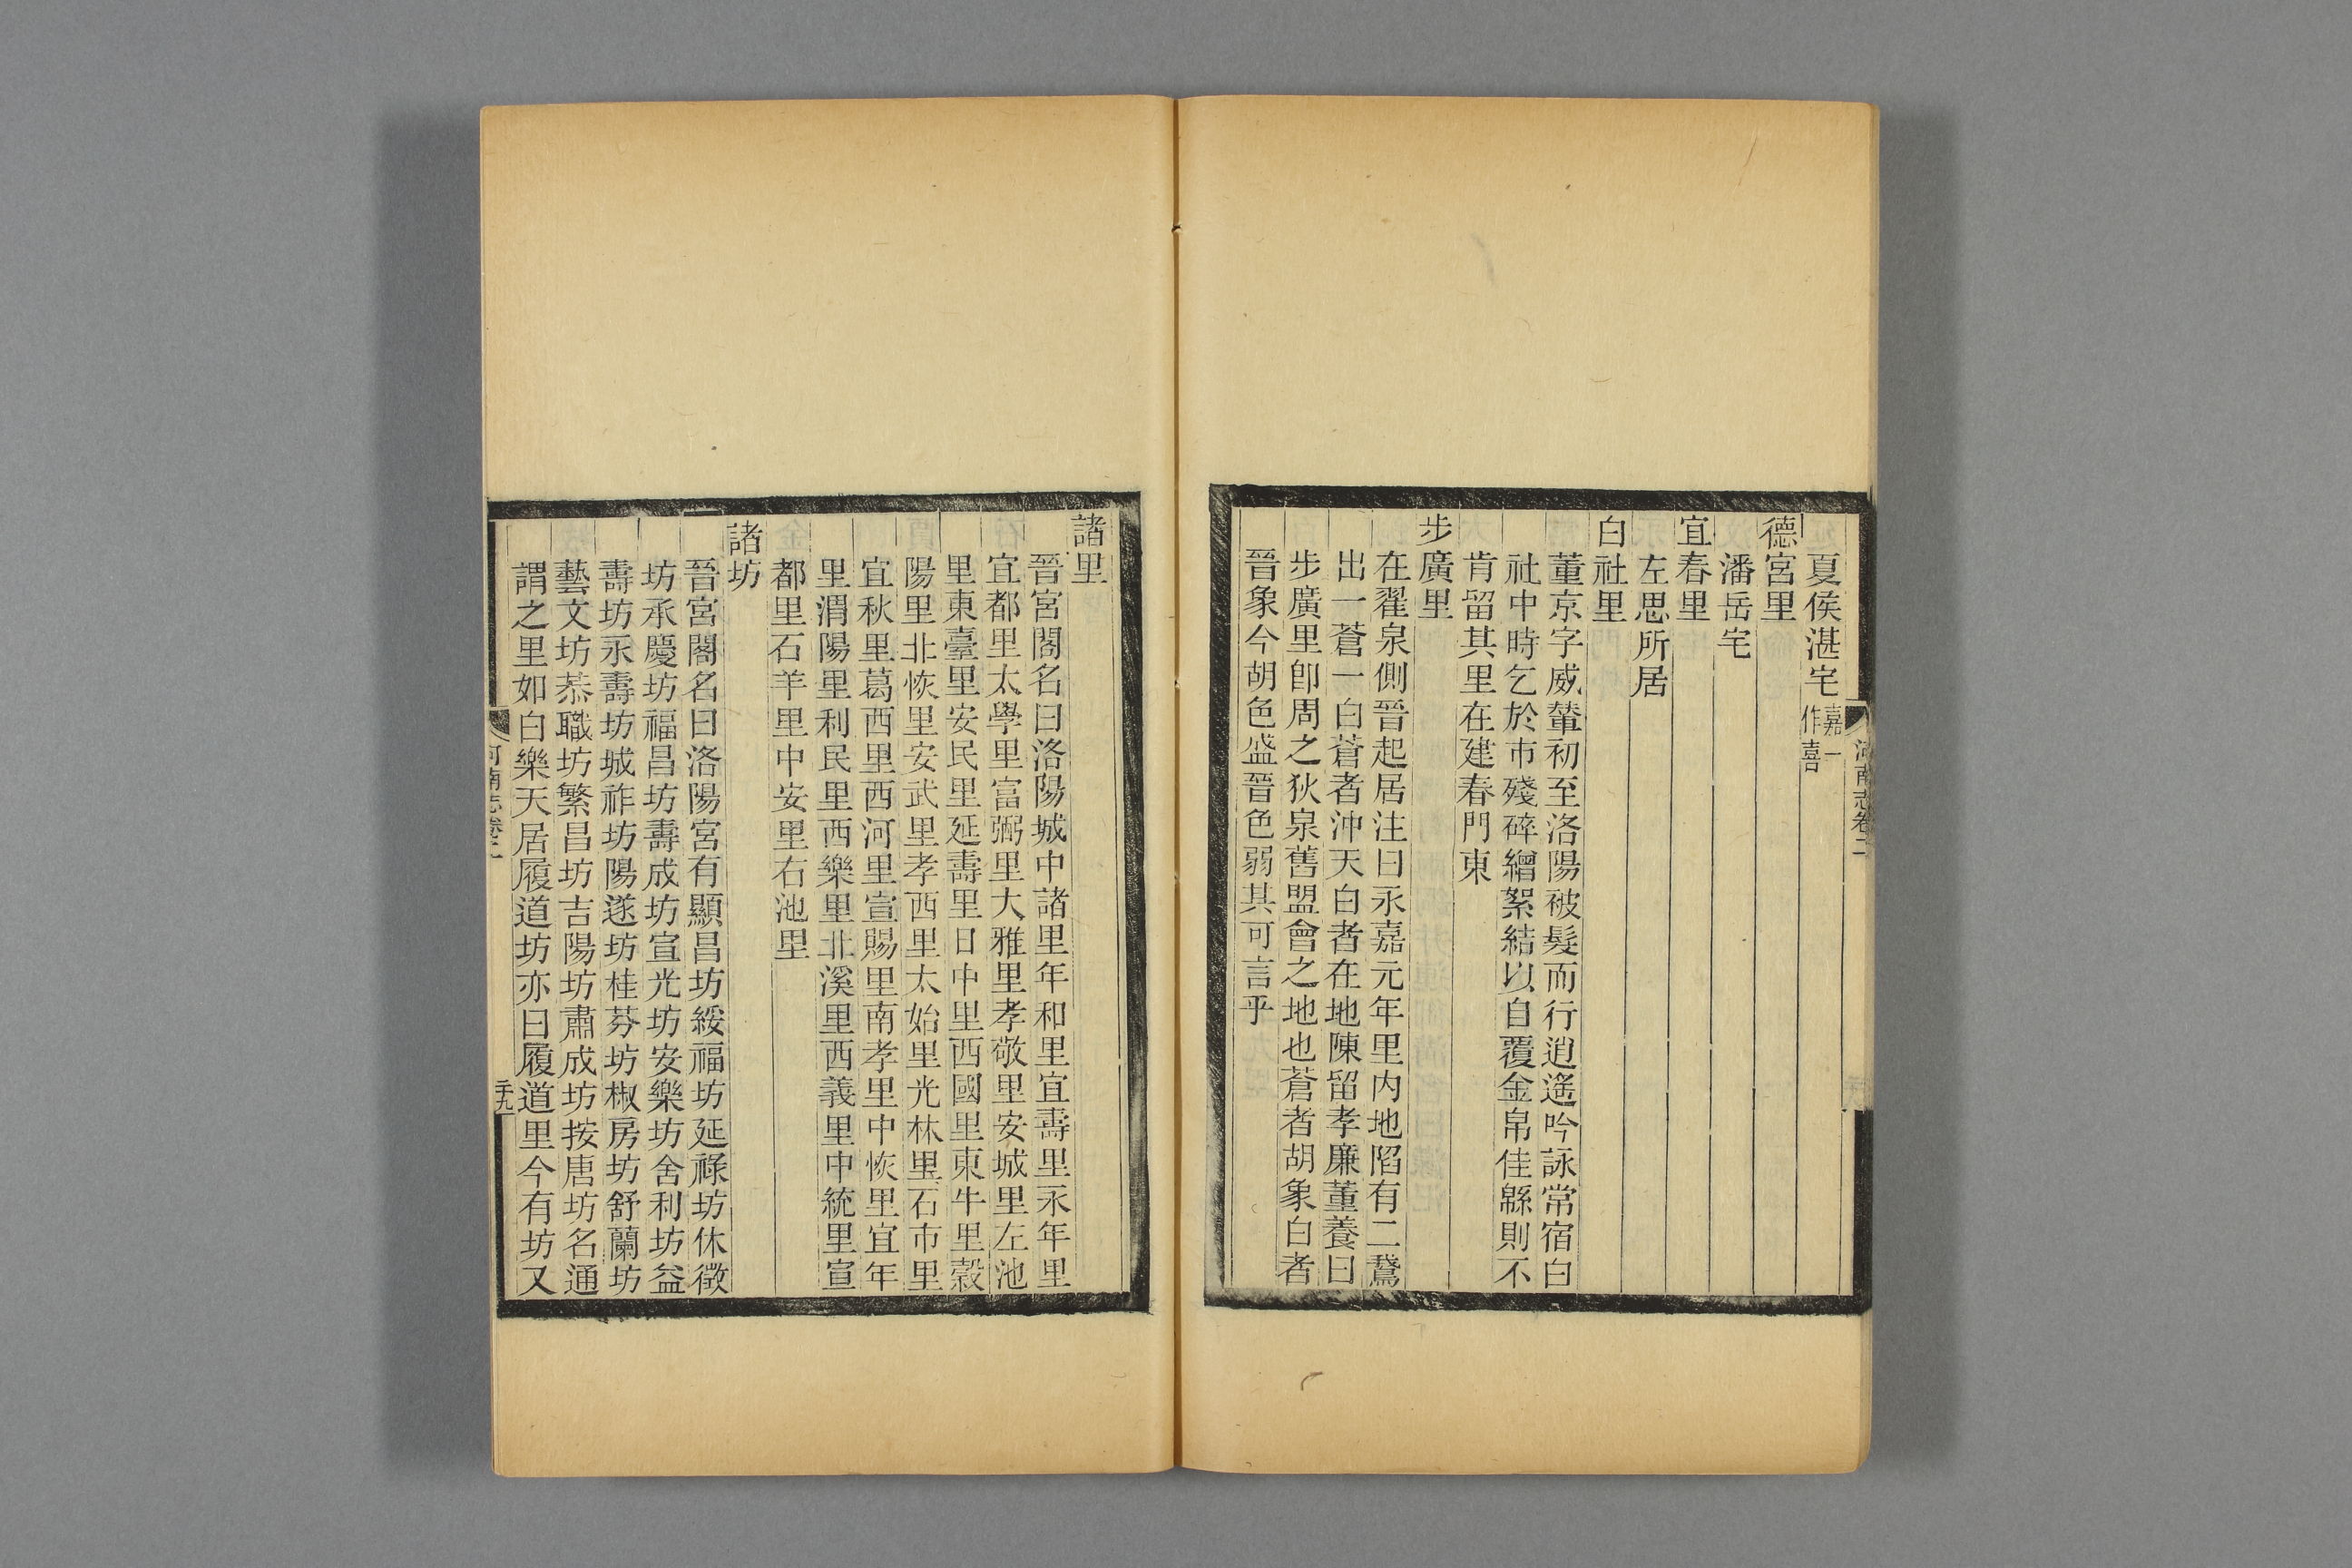 夏侯湛宅嘉一作喜
德宮里
潘岳宅
宜春里
左思所居
白社里
董京字威輦初至洛陽被髮而行逍遙吟詠常宿白
社中時乞於市殘碎繒絮結以自覆金帛佳緜則不
肯留其里在建春門東
步廣里
在翟泉側晉起居注曰永嘉元年里内地陷有二鵞
出一蒼一白蒼者沖天白者在地陳留孝廉董養曰
步廣里卽周之狄泉舊盟會之地也蒼者胡象白者
晉象今胡色盛晉色弱其可言乎
河南志卷二
諸里
晉宮閣名曰洛陽城中諸里年和里宜壽里永年里
宜都里太學里富弼里大雅里孝敬里安城里左池
里東臺里安民里延壽里日中里西國里東牛里穀
陽里北恢里安武里孝西里太始里光林里石市里
宜秋里葛西里西河里宣賜里南孝里中恢里宜年
里渭陽里利民里西樂里北溪里西義里中統里宣
都里石羊里中安里右池里
諸坊
晉宮閣名曰洛陽宮有顯昌坊綏福坊延祿坊休徵
坊承慶坊福昌坊壽成坊宣光坊安樂坊舍利坊益
壽坊永壽坊城祚坊陽遂坊桂芬坊椒房坊舒蘭坊
藝文坊恭職坊繁昌坊吉陽坊肅成坊按唐坊名通
謂之里如白樂天居履道坊亦曰履道里今有坊又
河南志卷二
三十九